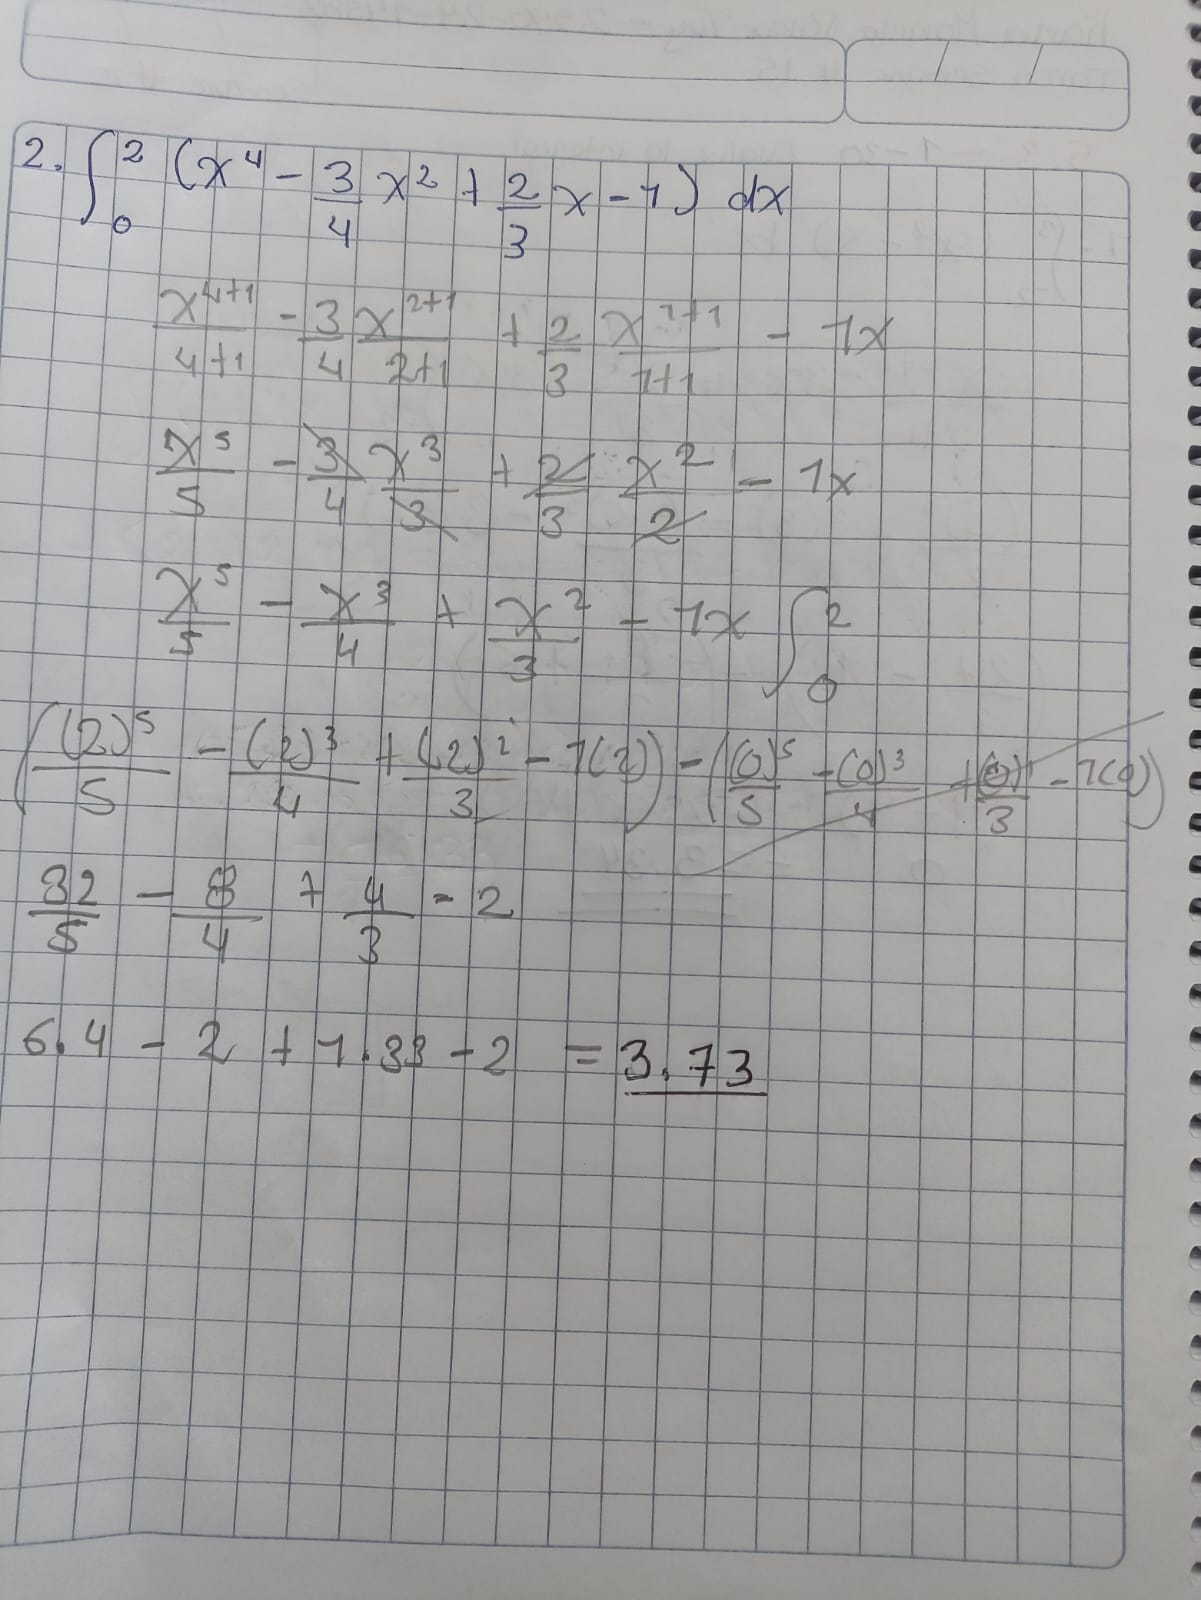 2. ∫₀² (x⁴ - 3/4 x² + 2/3 x - 1) dx
x⁴⁺¹/4+1 - 3/4 x²⁺¹/2+1 + 2/3 x¹⁺¹/1+1 - 1x
x⁵/5 - 3/4 x³/3 + 2/3 x²/2 - 1x
x⁵/5 - x³/4 + x²/3 - 1x ∫₀²
((2)⁵/5 - (2)³/4 + (2)²/3 - 1(2)) - ((0)⁵/5 - (0)³/4 + (0)/3 - 1(0))
32/5 - 8/4 + 4/3 - 2
6.4 - 2 + 1.33 - 2 = 3.73